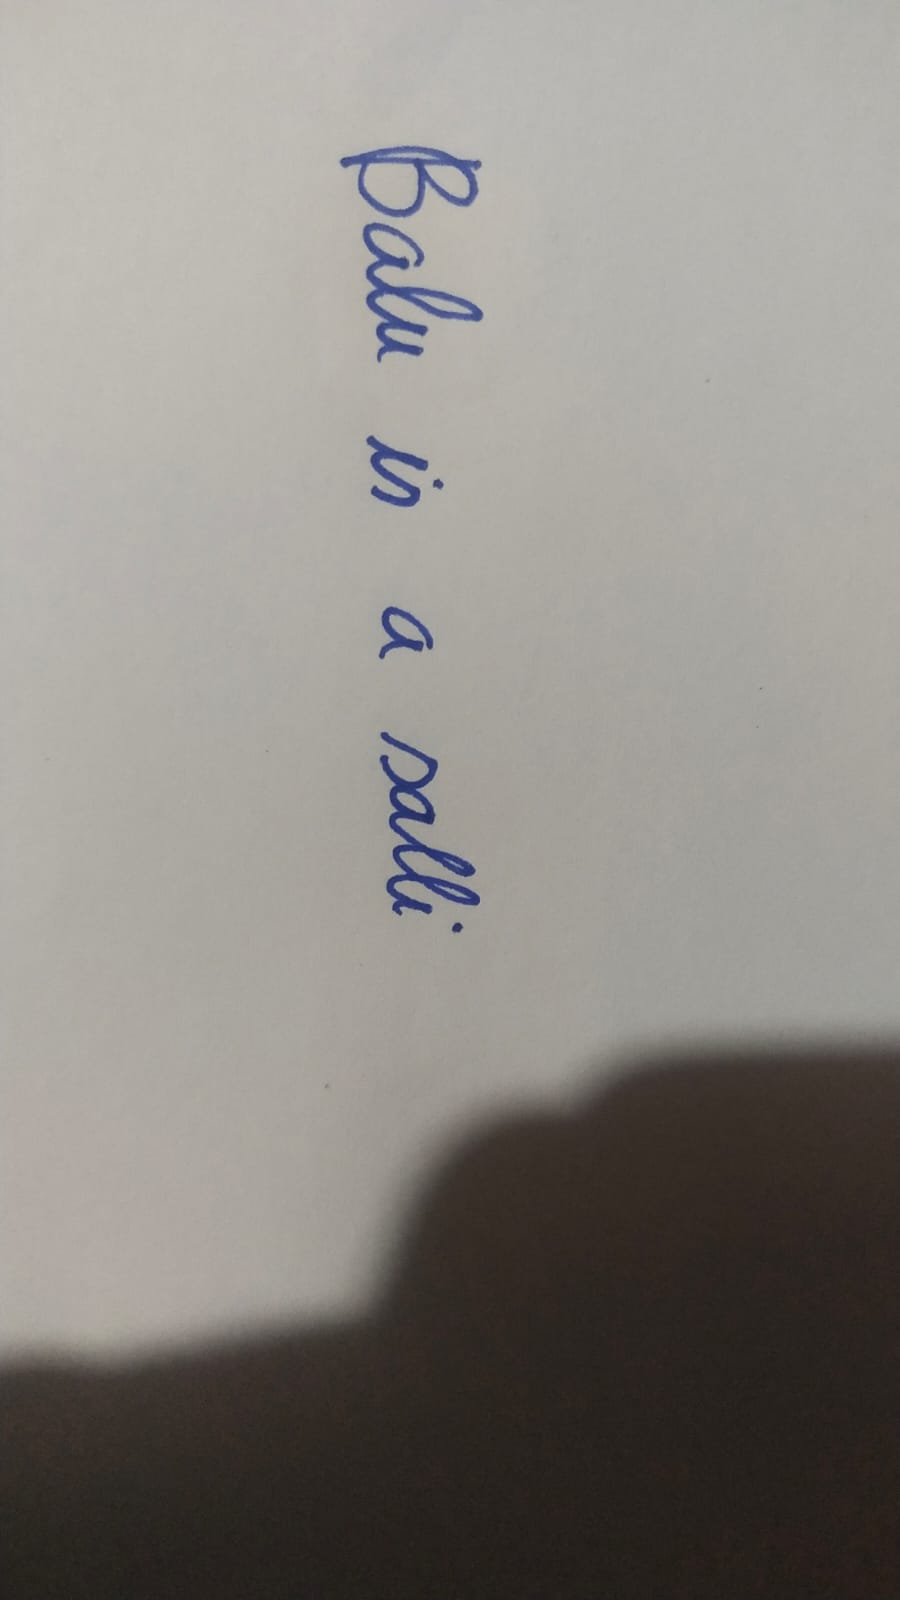 Balu is a salli